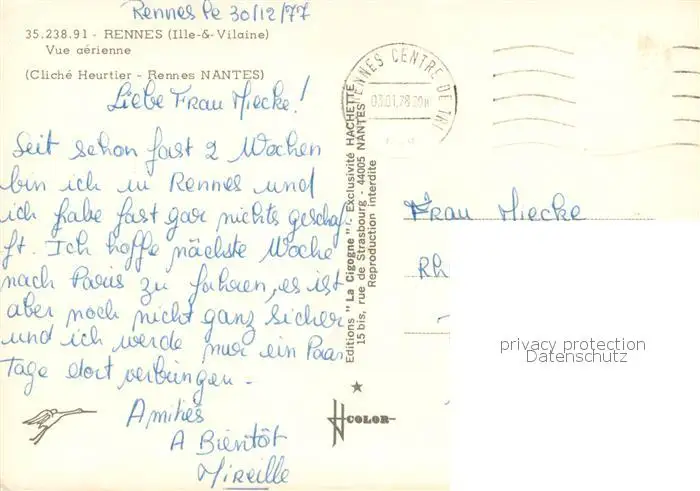 Rennes le 30/12/77
35.238.91 - RENNES (Ille-&-Vilaine)
Vue aérienne
(Cliché Heurtier - Rennes NANTES)
Liebe Frau Miecke!
Seit schon fast 2 Wochen
bin ich in Rennes und
ich habe fast gar nichts gescha-
ft. Ich hoffe nächste Woche
nach Paris zu fahren, es ist
aber noch nicht ganz sicher
und ich werde nur ein Paar
Tage dort verbringen.
Amitiés
A Bientôt
Mireille
Editions "La Cigogne" - Exclusivité HACHETTE
15 bis, rue de Strasbourg - 44005 NANTES
Reproduction interdite
COLOR
RENNES CENTRE DE TRI
03.01.78
Frau Miecke
Rh
privacy protection
Datenschutz